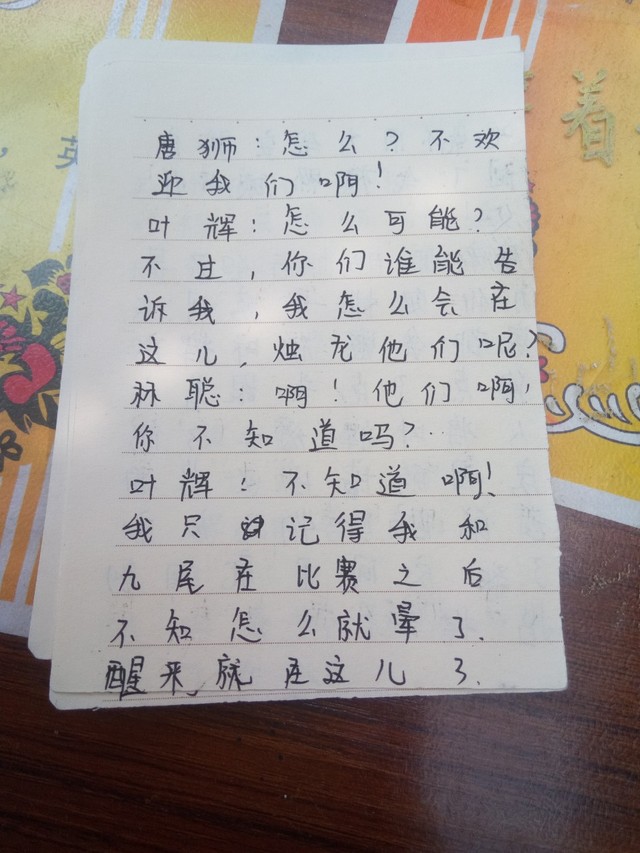 唐狮:怎么?不欢
迎我们啊!
叶辉:怎么可能?
不过,你们谁能告
诉我,我怎么会在
这儿,烛龙他们呢?
林聪:啊!他们啊,
你不知道吗?··
叶辉:不知道啊!
我只记得我和
九尾在比赛之后
不知怎么就晕了.
醒来,就在这儿了.
着
,英